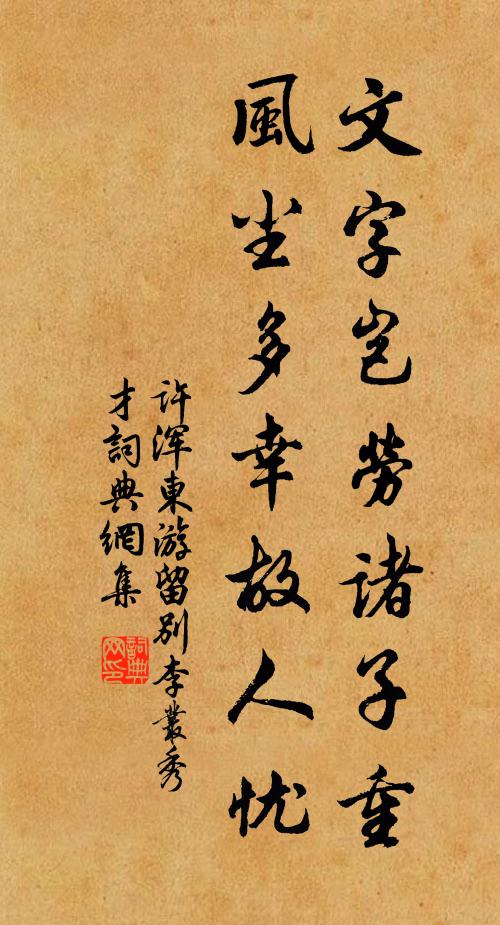 文字岂勞諸子重
風尘多幸故人忧
许浑東游留别李叢秀
才詞典網集
詞典
网印